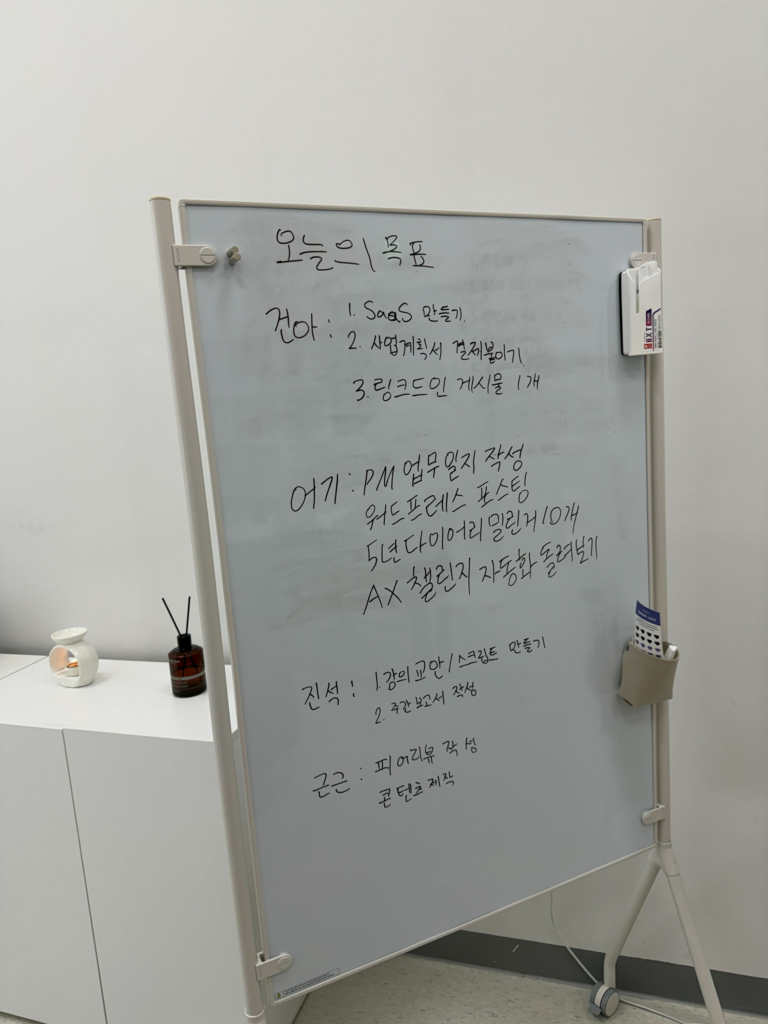 오늘의 목표
건아 : 1. SaaS 만들기
2. 사업계획서 결제붙이기
3. 링크드인 게시물 1개
어기 : PM 업무일지 작성
워드프레스 포스팅
5년다이어리 밀린거 10개
AX 챌린지 자동화 돌려보기
진석 : 1. 강의교안/스크립트 만들기
2. 주간보고서 작성
근근 : 피어리뷰 작성
콘텐츠 제작